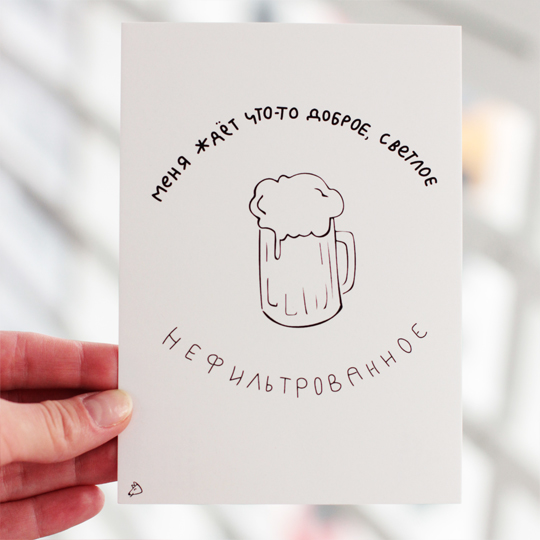 меня ждёт что-то доброе, светлое
нефильтрованное